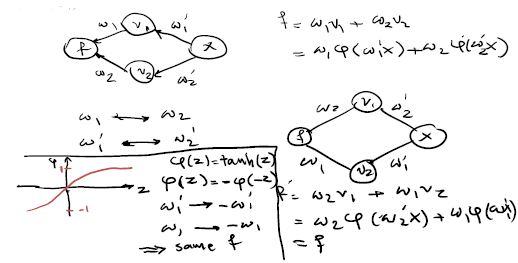 ω₁ v₁ ω₁'
f x
ω₂ v₂ ω₂'
f = ω₁v₁ + ω₂v₂
= ω₁φ(ω₁'x) + ω₂φ(ω₂'x)
ω₁ ↔ ω₂
ω₁' ↔ ω₂'
ω₂ v₁ ω₂'
f x
ω₁ v₂ ω₁'
φ 1 z -1
φ(z) = tanh(z)
φ(z) = -φ(-z)
ω₁' → -ω₁'
ω₁ → -ω₁
⇒ same f
f' = ω₂v₁ + ω₁v₂
= ω₂φ(ω₂'x) + ω₁φ(ω₁'x)
= f